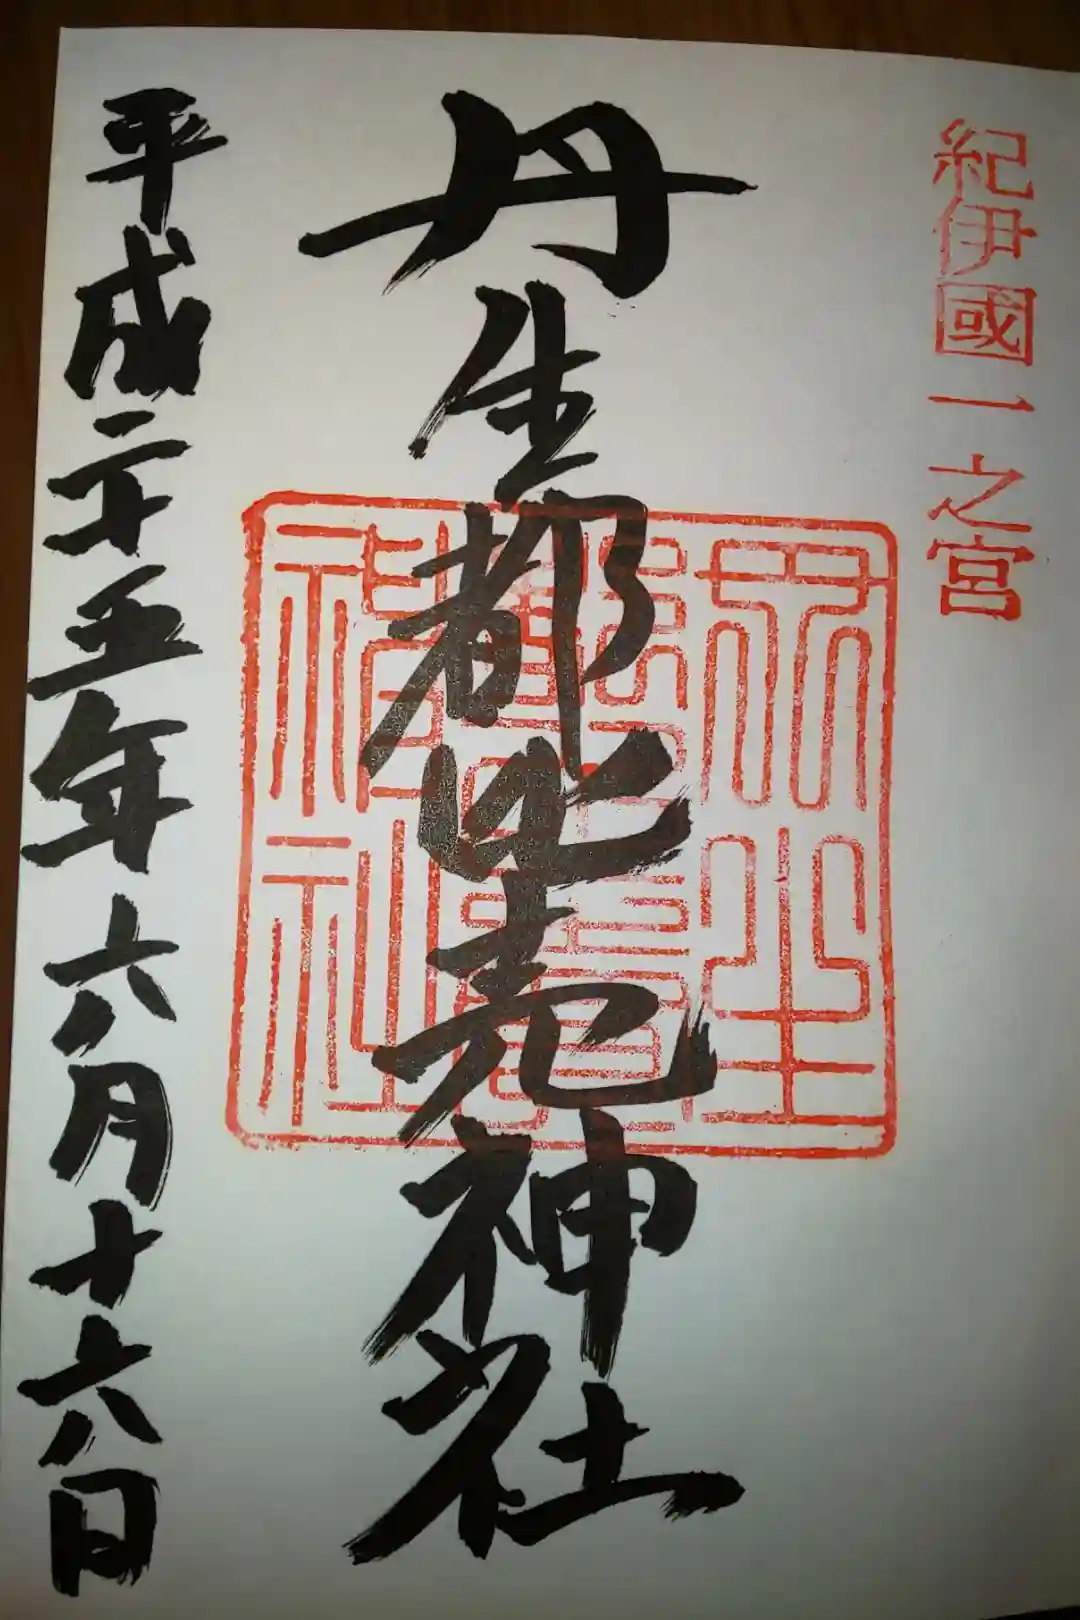 紀伊國一之宮
丹生都比売神社
丹生都比賣神社
平成二十五年六月十六日